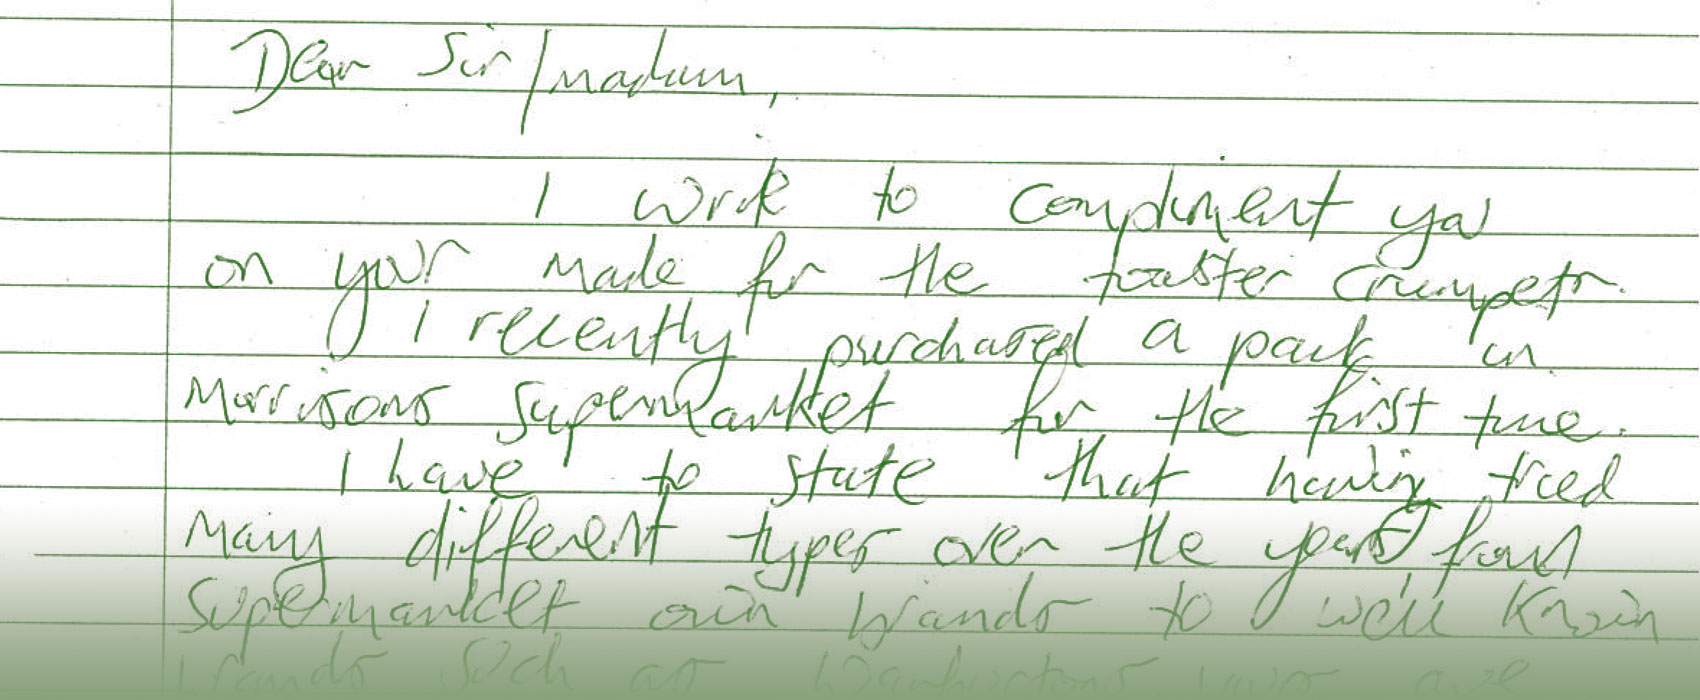 Dear Sir/madam,
I write to compliment you
on your made for the toaster crumpets.
I recently purchased a pack in
Morrisons Supermarket for the first time.
I have to state that having tried
Many different types over the years, from
Supermarket own brands to well known
brands such as Warburtons yours are